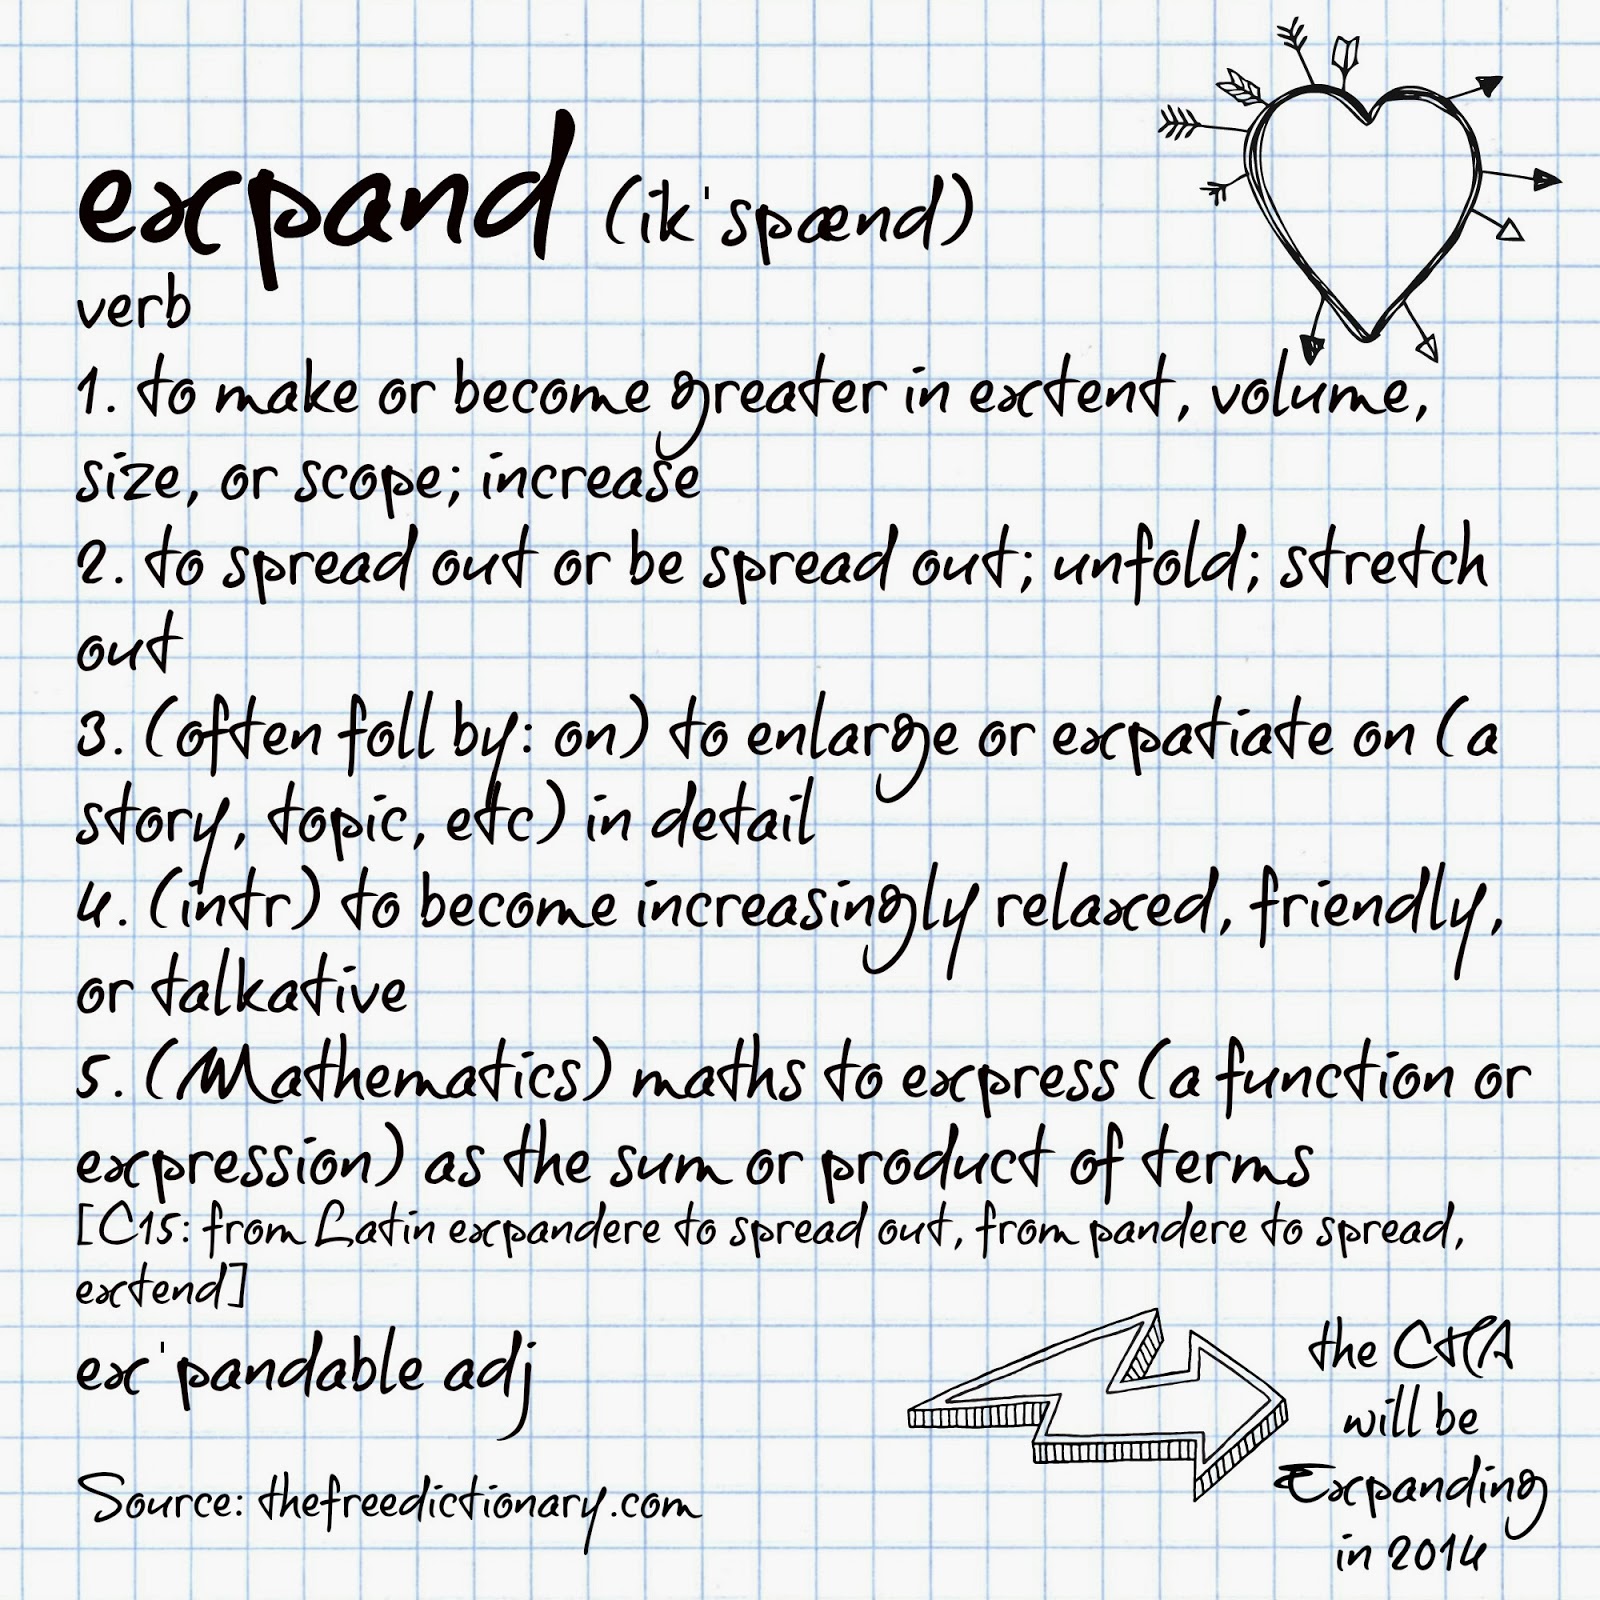 expand (ik'spænd)
verb
1. to make or become greater in extent, volume,
size, or scope; increase
2. to spread out or be spread out; unfold; stretch
out
3. (often foll by: on) to enlarge or expatiate on (a
story, topic, etc) in detail
4. (intr) to become increasingly relaxed, friendly,
or talkative
5. (Mathematics) maths to express (a function or
expression) as the sum or product of terms
[C15: from Latin expandere to spread out, from pandere to spread,
extend]
ex'pandable adj
Source: thefreedictionary.com
the CHA
will be
Expanding
in 2014